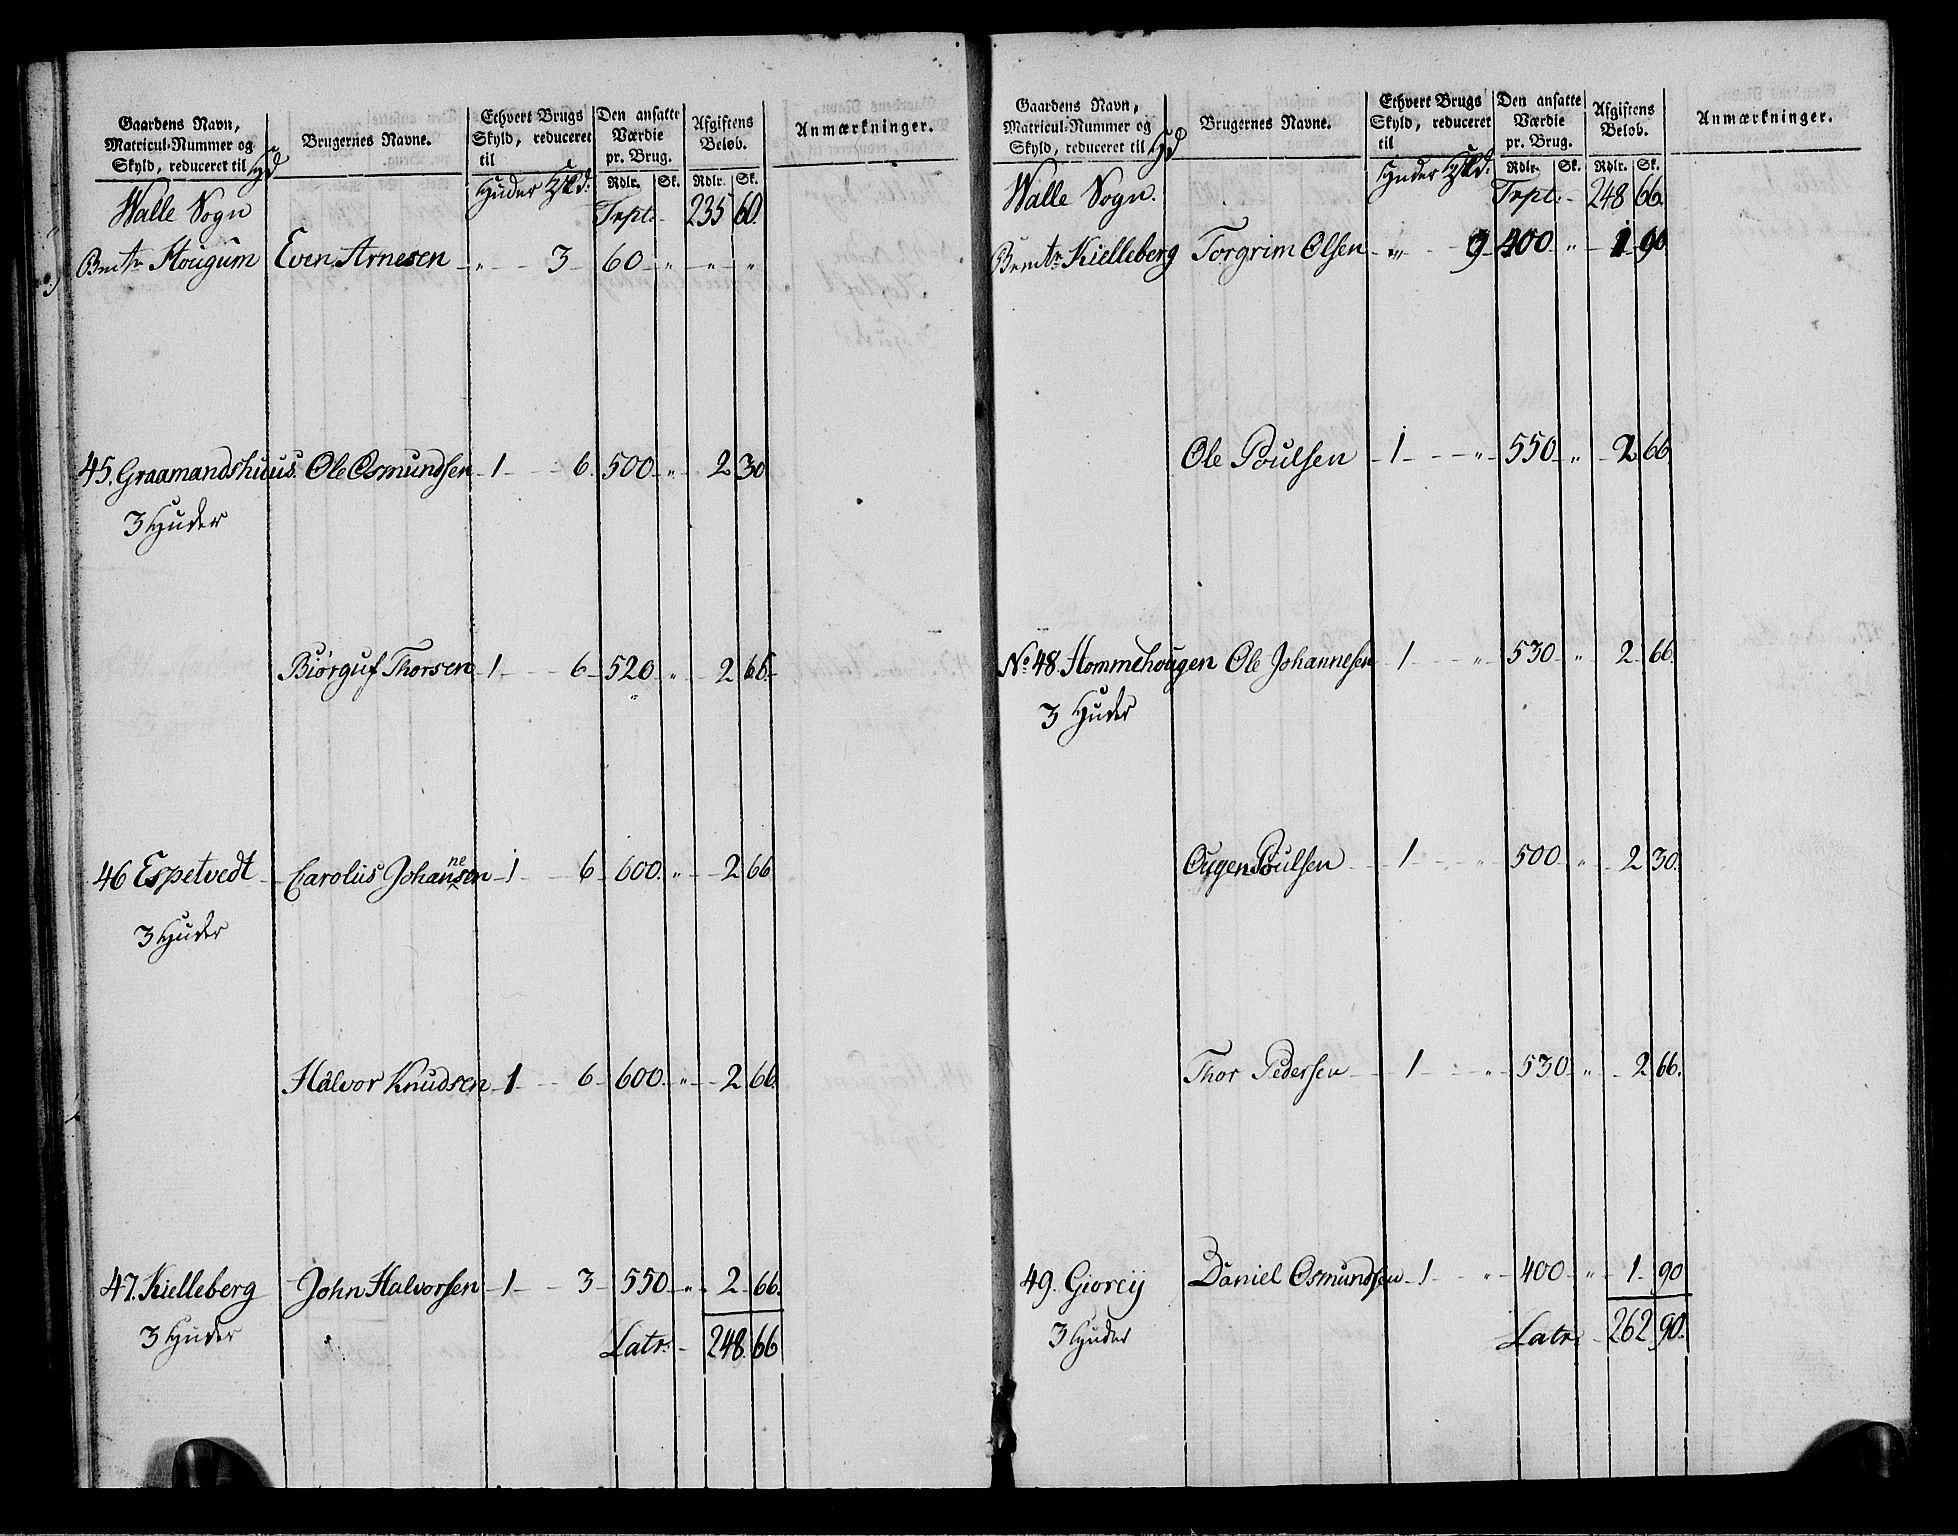 Gaardens Navn, Matricul-Nummer og Skyld, reduceret til Hd
Brugernes Navne.
Ethvert Brugs Skyld, reduceret til
Den ansatte Værdie pr. Brug.
Afgiftens Beløb.
Anmærkninger.
Huder Rdlr. Sk. Rdlr. Sk.
Walle Sogn Trpt: 235 60.
Bmtr Hougum Even Arnesen " 3 60 " " "
45. Graamandshuus. Ole Osmundsen 1 6. 500 " 2 30
3 Huder
Biørguf Thorsen 1 6 520 " 2 66.
46 Espetvedt Carolus Johannesen 1 6 600. " 2 66
3 Huder
Halvor Knudsen 1 6 600. " 2 66.
47. Kielleberg John Halvorsen 1 3 550 " 2 66.
3 Huder
Latr: 248. 66
Gaardens Navn, Matricul-Nummer og Skyld, reduceret til Hd
Brugernes Navne.
Ethvert Brugs Skyld, reduceret til
Den ansatte Værdie pr. Brug.
Afgiftens Beløb.
Anmærkninger.
Huder Rdlr. Sk. Rdlr. Sk.
Walle Sogn. Trpt: 248 66.
Bmtr Kielleberg Torgrim Olsen " 9 400 " 1 90
Ole Poulsen 1 " 550 " 2 66
No 48. Hommehougen Ole Johannesen 1 " 530 " 2 66.
3 Huder
Ougen Poulsen 1 " 500 " 2 30.
Thor Pedersen 1 " 530 " 2 66.
49. Giöreij Daniel Osmundsen 1 " 400 " 1 90
3 Huder
Latr: 262 90.